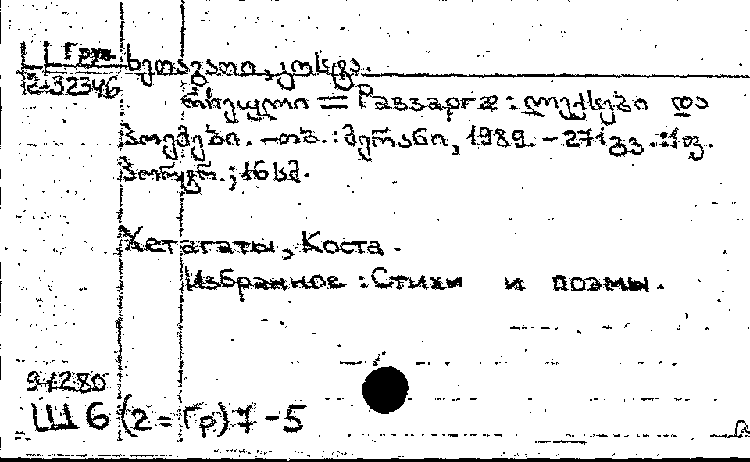 Груз.
2-32346
ხეთაგათი, კოსტა.
რჩეული = Равзаргæ : ლექსები და
პოემები. – თბ. : მერანი, 1989. – 271 გვ. : 1 ფ.
პორტრ. ; 16 სმ.
Хетагаты, Коста.
Избранное : Стихи и поэмы.
94280
Ш 6 (2=Гр) 7-5